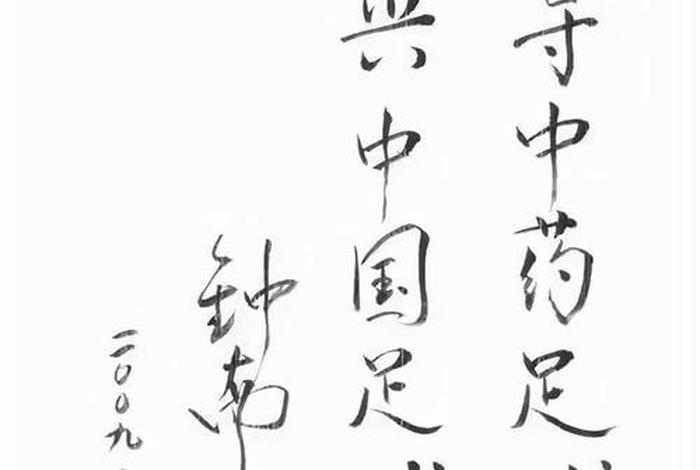 中药足
兴中国足
钟南
二〇〇九